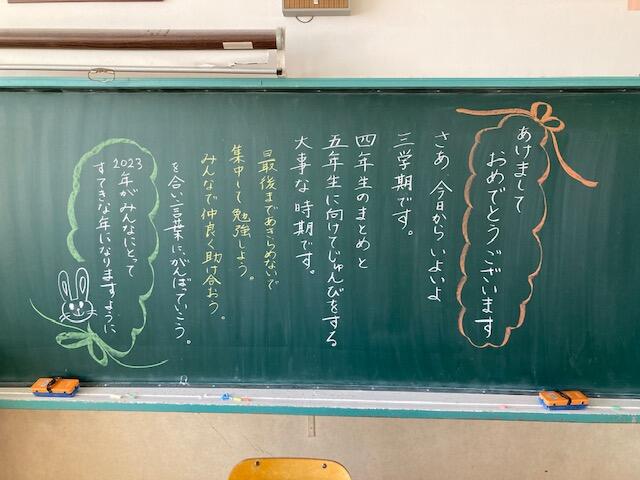 あけまして
おめでとうございます
さあ、今日からいよいよ
三学期です。
四年生のまとめと
五年生に向けてじゅんびをする
大事な時期です。
最後まであきらめないで
集中して勉強しよう。
みんなで仲良く助け合おう。
を合い言葉に、がんばっていこう。
2023年がみんなにとって
すてきな年になりますように